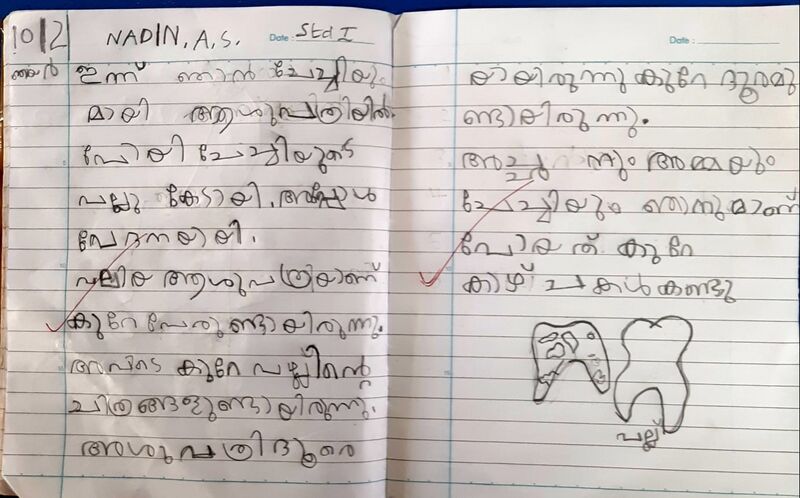 10/2
NADIN. A. S.
Date: Std I
ഞായർ
ഇന്ന് ഞാൻ ചേച്ചിയും
മായി ആശുപത്രിയിൽ
പോയി ചേച്ചിയുടെ
പല്ലു കേടായി. അപ്പോൾ
വേദനയായി.
വലിയ ആശുപത്രിയാണ്
കുറേ പേരുണ്ടായിരുന്നു.
അവിടെ കുറേ പല്ലിന്റെ
ചിത്രങ്ങളുണ്ടായിരുന്നു.
ആശുപത്രി ദൂരെ
Date:
യായിരുന്നു കുറേ ദൂരമു
ണ്ടായിരുന്നു.
അച്ഛനും അമ്മയും
ചേച്ചിയും ഞാനുമാണ്
പോയത് കുറേ
കാഴ്ചകൾ കണ്ടു
പല്ല്